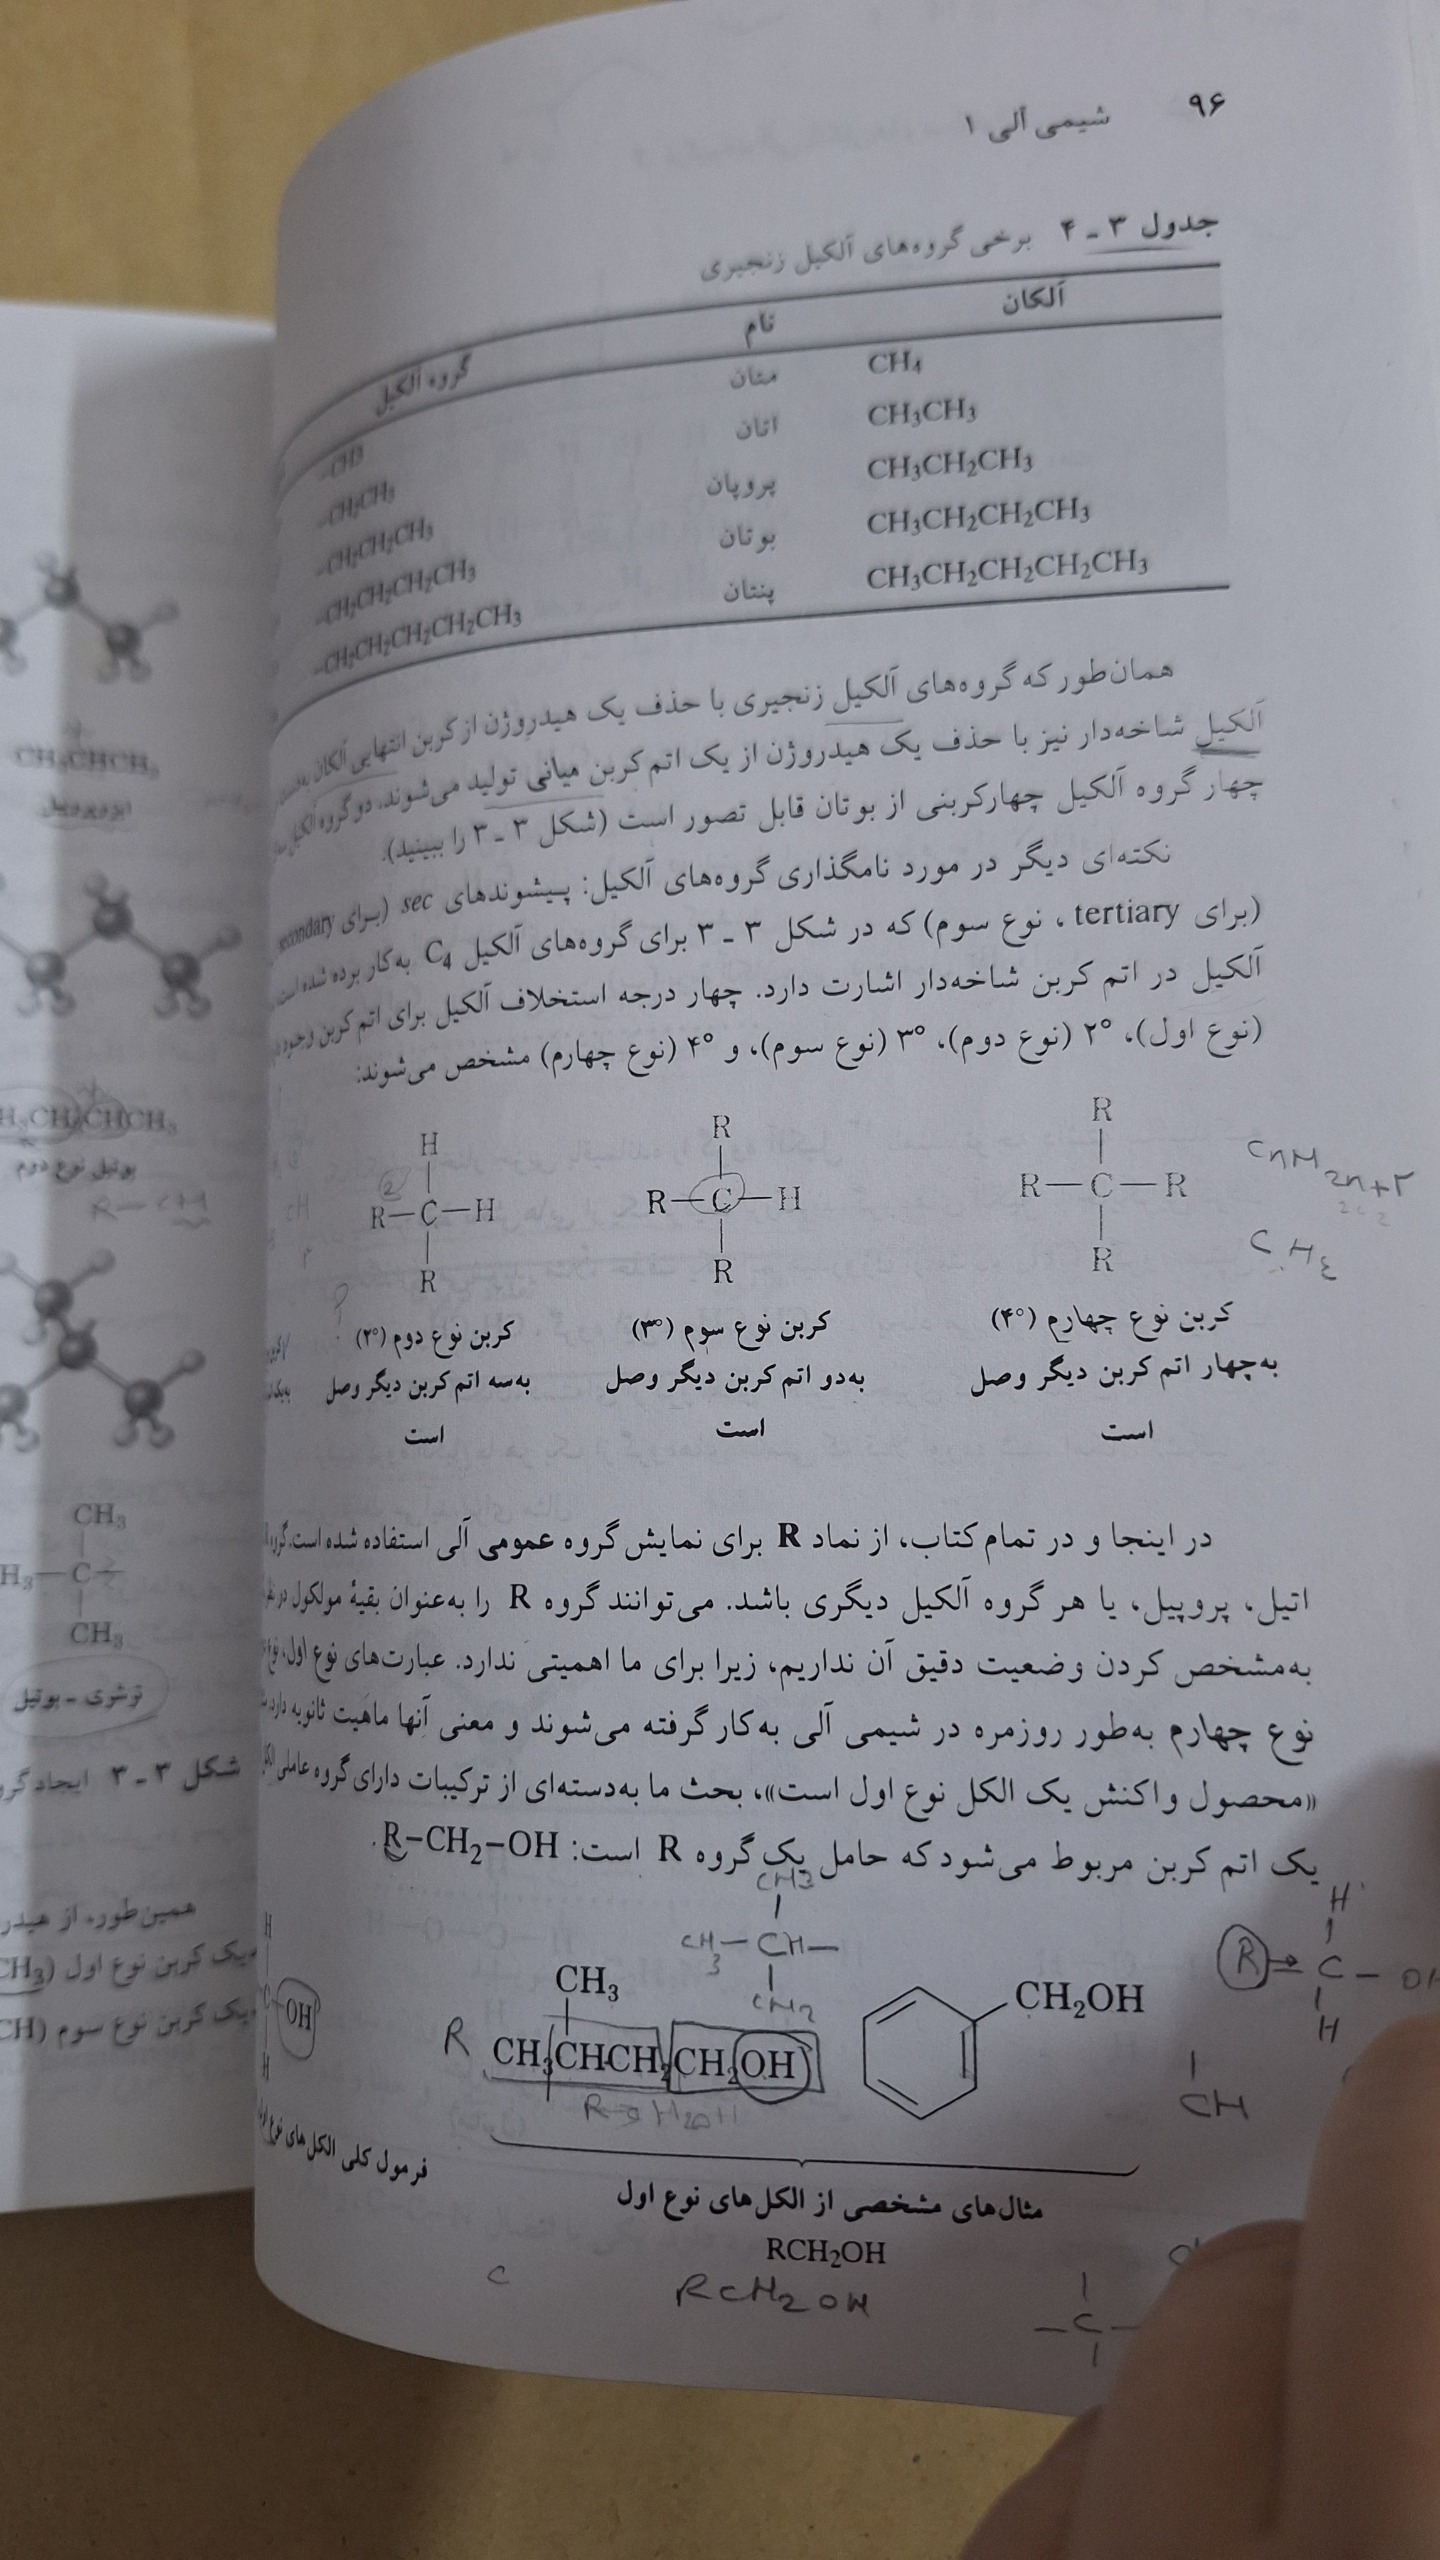 ۹۶ شیمی آلی ۱
جدول ۳ ـ ۴ برخی گروه‌های آلکیل زنجیری
آلکان نام گروه آلکیل
CH₄ متان –CH₃
CH₃CH₃ اتان –CH₂CH₃
CH₃CH₂CH₃ پروپان –CH₂CH₂CH₃
CH₃CH₂CH₂CH₃ بوتان –CH₂CH₂CH₂CH₃
CH₃CH₂CH₂CH₂CH₃ پنتان –CH₂CH₂CH₂CH₂CH₃
همان‌طور که گروه‌های آلکیل زنجیری با حذف یک هیدروژن از کربن انتهایی آلکان
آلکیل شاخه‌دار نیز با حذف یک هیدروژن از یک اتم کربن میانی تولید می‌شوند، دو گروه آلکیل
چهار گروه آلکیل چهارکربنی از بوتان قابل تصور است (شکل ۳ ـ ۳ را ببینید).
نکته‌ای دیگر در مورد نامگذاری گروه‌های آلکیل: پیشوندهای sec (برای secondary
(برای tertiary ، نوع سوم) که در شکل ۳ ـ ۳ برای گروه‌های آلکیل C₄ به‌کار برده شده است
آلکیل در اتم کربن شاخه‌دار اشارت دارد. چهار درجه استخلاف آلکیل برای اتم کربن وجود
(نوع اول)، ۲° (نوع دوم)، ۳° (نوع سوم)، و ۴° (نوع چهارم) مشخص می‌شوند:
R R H
R—C—R R—C—H R—C—H
R R R
2
CnH2n+2
CH4
کربن نوع چهارم (۴°) کربن نوع سوم (۳°) کربن نوع دوم (۲°)
به‌چهار اتم کربن دیگر وصل به‌دو اتم کربن دیگر وصل به‌سه اتم کربن دیگر وصل
است است است
در اینجا و در تمام کتاب، از نماد R برای نمایش گروه عمومی آلی استفاده شده است.
اتیل، پروپیل، یا هر گروه آلکیل دیگری باشد. می‌توانند گروه R را به‌عنوان بقیهٔ مولکول در
به‌مشخص کردن وضعیت دقیق آن نداریم، زیرا برای ما اهمیتی ندارد. عبارت‌های نوع اول،
نوع چهارم به‌طور روزمره در شیمی آلی به‌کار گرفته می‌شوند و معنی آنها ماهیت ثانویه دارد.
«محصول واکنش یک الکل نوع اول است»، بحث ما به‌دسته‌ای از ترکیبات دارای گروه عاملی
یک اتم کربن مربوط می‌شود که حامل یک گروه R است: R–CH₂–OH.
CH3
CH3—CH—
CH2
CH₃
CH₃CHCH₂CH₂OH
R
CH₂OH
H
R C—OH
H
CH
فرمول کلی الکل‌های نوع
مثال‌های مشخصی از الکل‌های نوع اول
RCH₂OH
RCH2OH
C
—C—
CH₃CHCH₃
ایزوپروپیل
CH₃CH₂CHCH₃
بوتیل نوع دوم
R—CH
CH₃
H₃—C—
CH₃
ترشری ـ بوتیل
شکل ۳ ـ ۳ ایجاد
همین‌طور، از
یک کربن نوع اول (CH₃
یک کربن نوع سوم (CH
OH